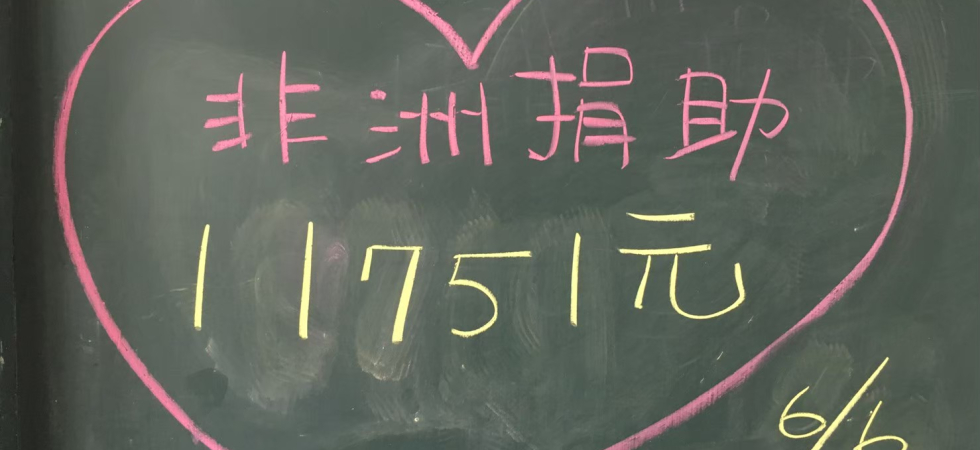 非洲捐助
11751元
6/6